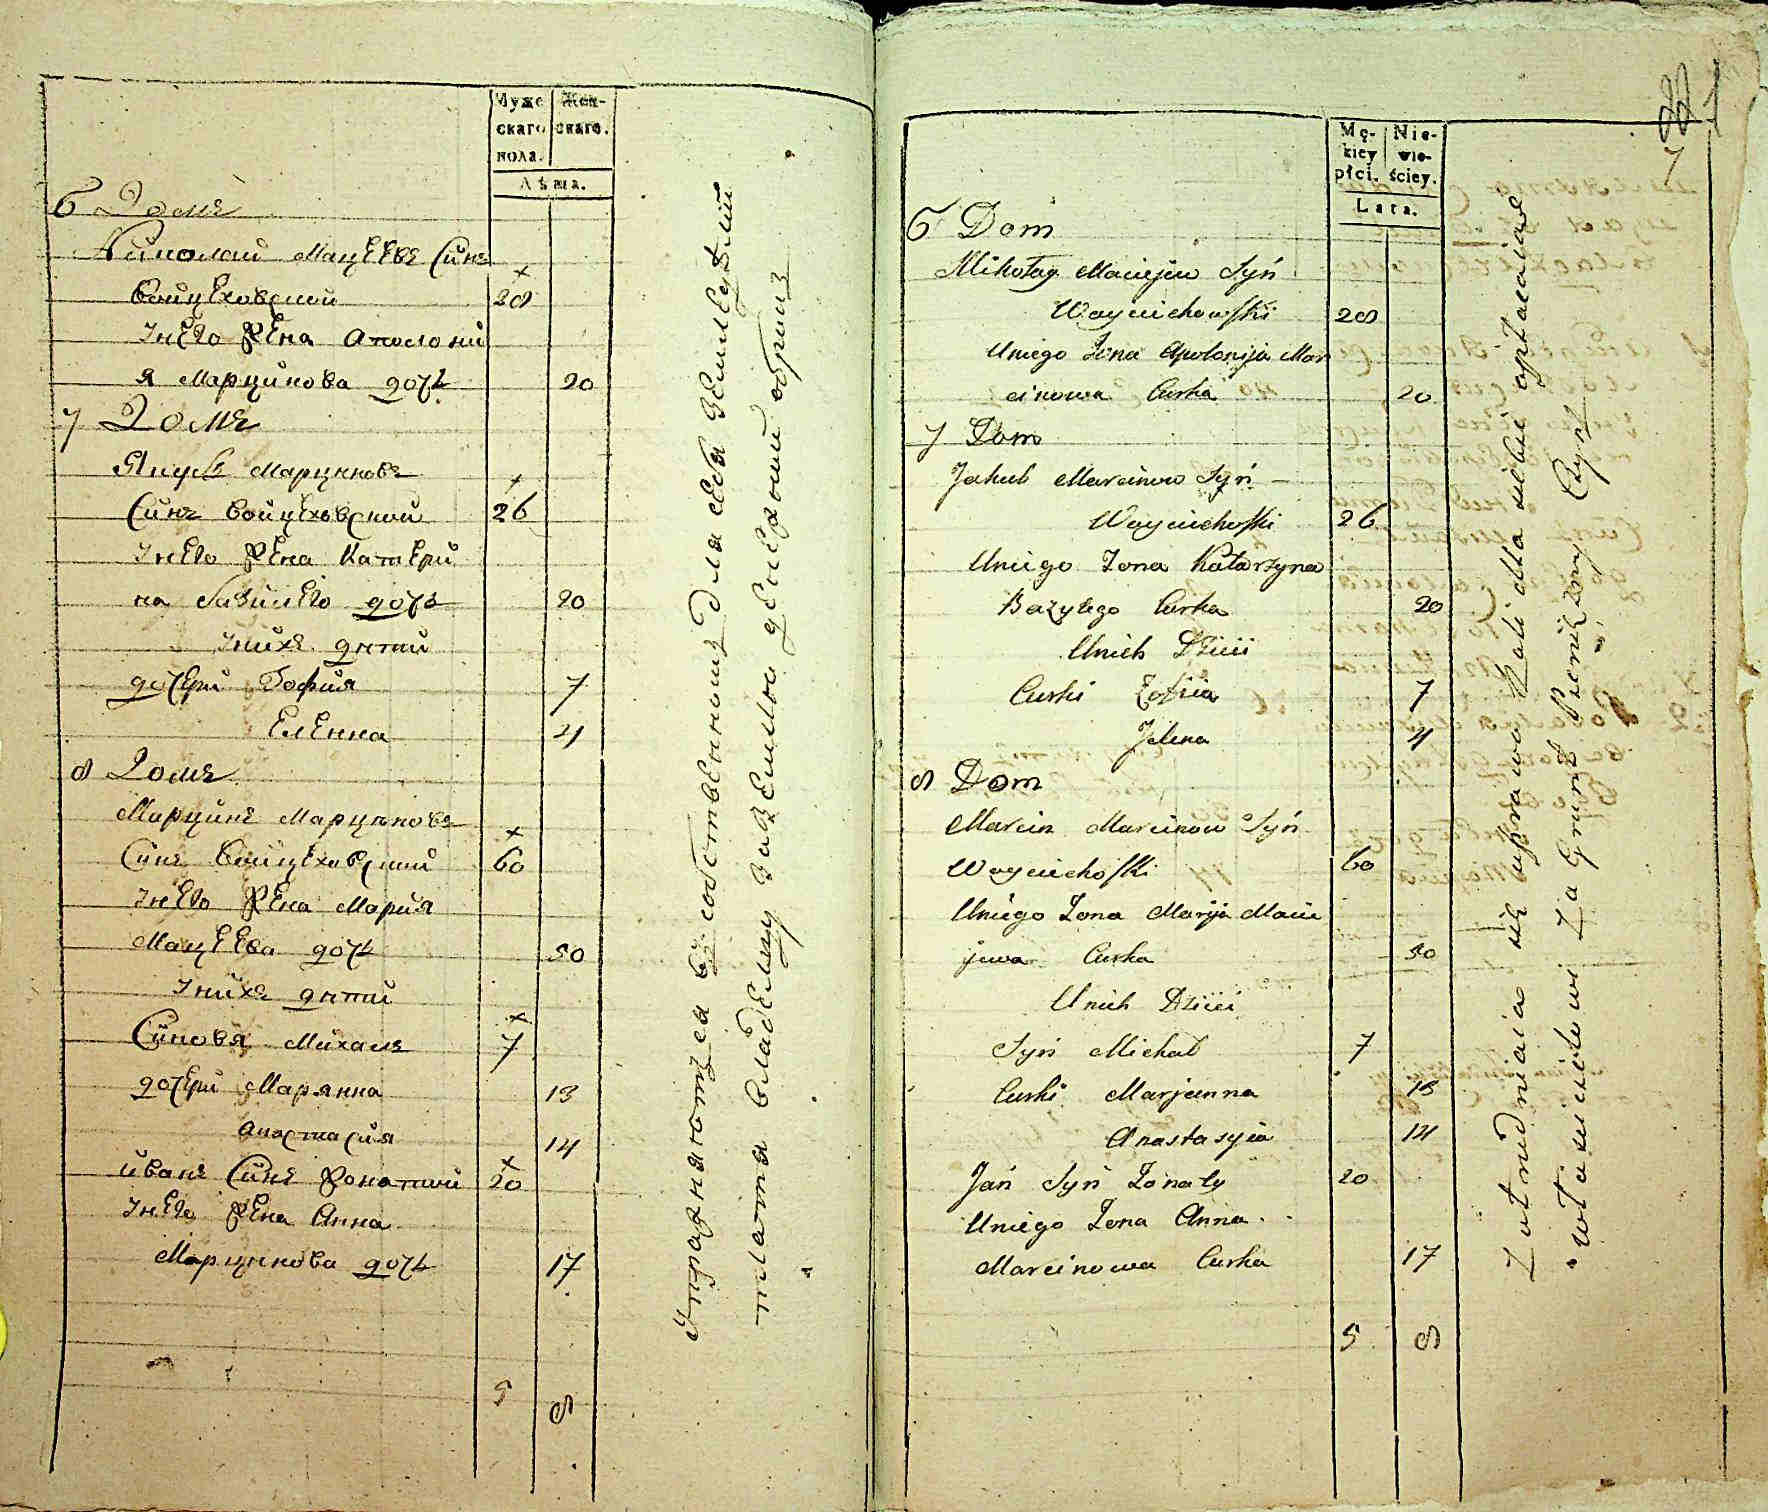 Муже
скаго
пола.
Жен-
скаго.
Лѣта.
6 Домъ
Николай Мацѣевъ Синъ
Войцѣховской 28
Унѣго жена Аполони
я Марцинова дочь 20
7 Домъ
Якубъ Марциновъ
Синъ Войцѣховской 26
Унѣго жена Катери
на Базилѣго дочь 20
Унихъ дѣти
дочери Зофия 7
Еленна 4
8 Домъ
Марцинъ Марциновъ
Синъ Войцѣховский 60
Унѣго жена Мария
Мацѣева дочь 50
Унихъ дѣти
Синовя Михалъ 7
дочери Марянна 13
Анастасия 14
Иванъ Синъ жонатий 20
Унѣго жена Анна
Марцинова дочь 17
5 8
Упражняютца въ собственномъ для себя земледѣлии
платя владельцу за землю денежный оброкъ
7
Mę-
kiey
płci.
Nie-
wie-
ściey.
Lata.
6 Dom
Mikołay Maciejew Syń
Woyciechowski 28
Uniego Zona Apolonija Mar
cinowa Curka 20
7 Dom
Jakub Marcinow Syń
Woyciechoski 26
Uniego Zona Katarzyna
Bazylego Curka 20
Unich Dzieci
Curki Zofiia 7
Jelena 4
8 Dom
Marcin Marcinow Syń
Woyciechoski 60
Uniego Zona Marija Macie
jewa Curka 50
Unich Dzieci
Syń Michał 7
Curki Marjanna 13
Anastasyia 14
Jań Syń Zonaty 20
Uniego Zona Anna
Marcinowa Curka 17
5 8
Zatrudniaia się uprawa Roli dla siebie opłacaiac
włascicielowi za Grunt Pieniężny Czynsz